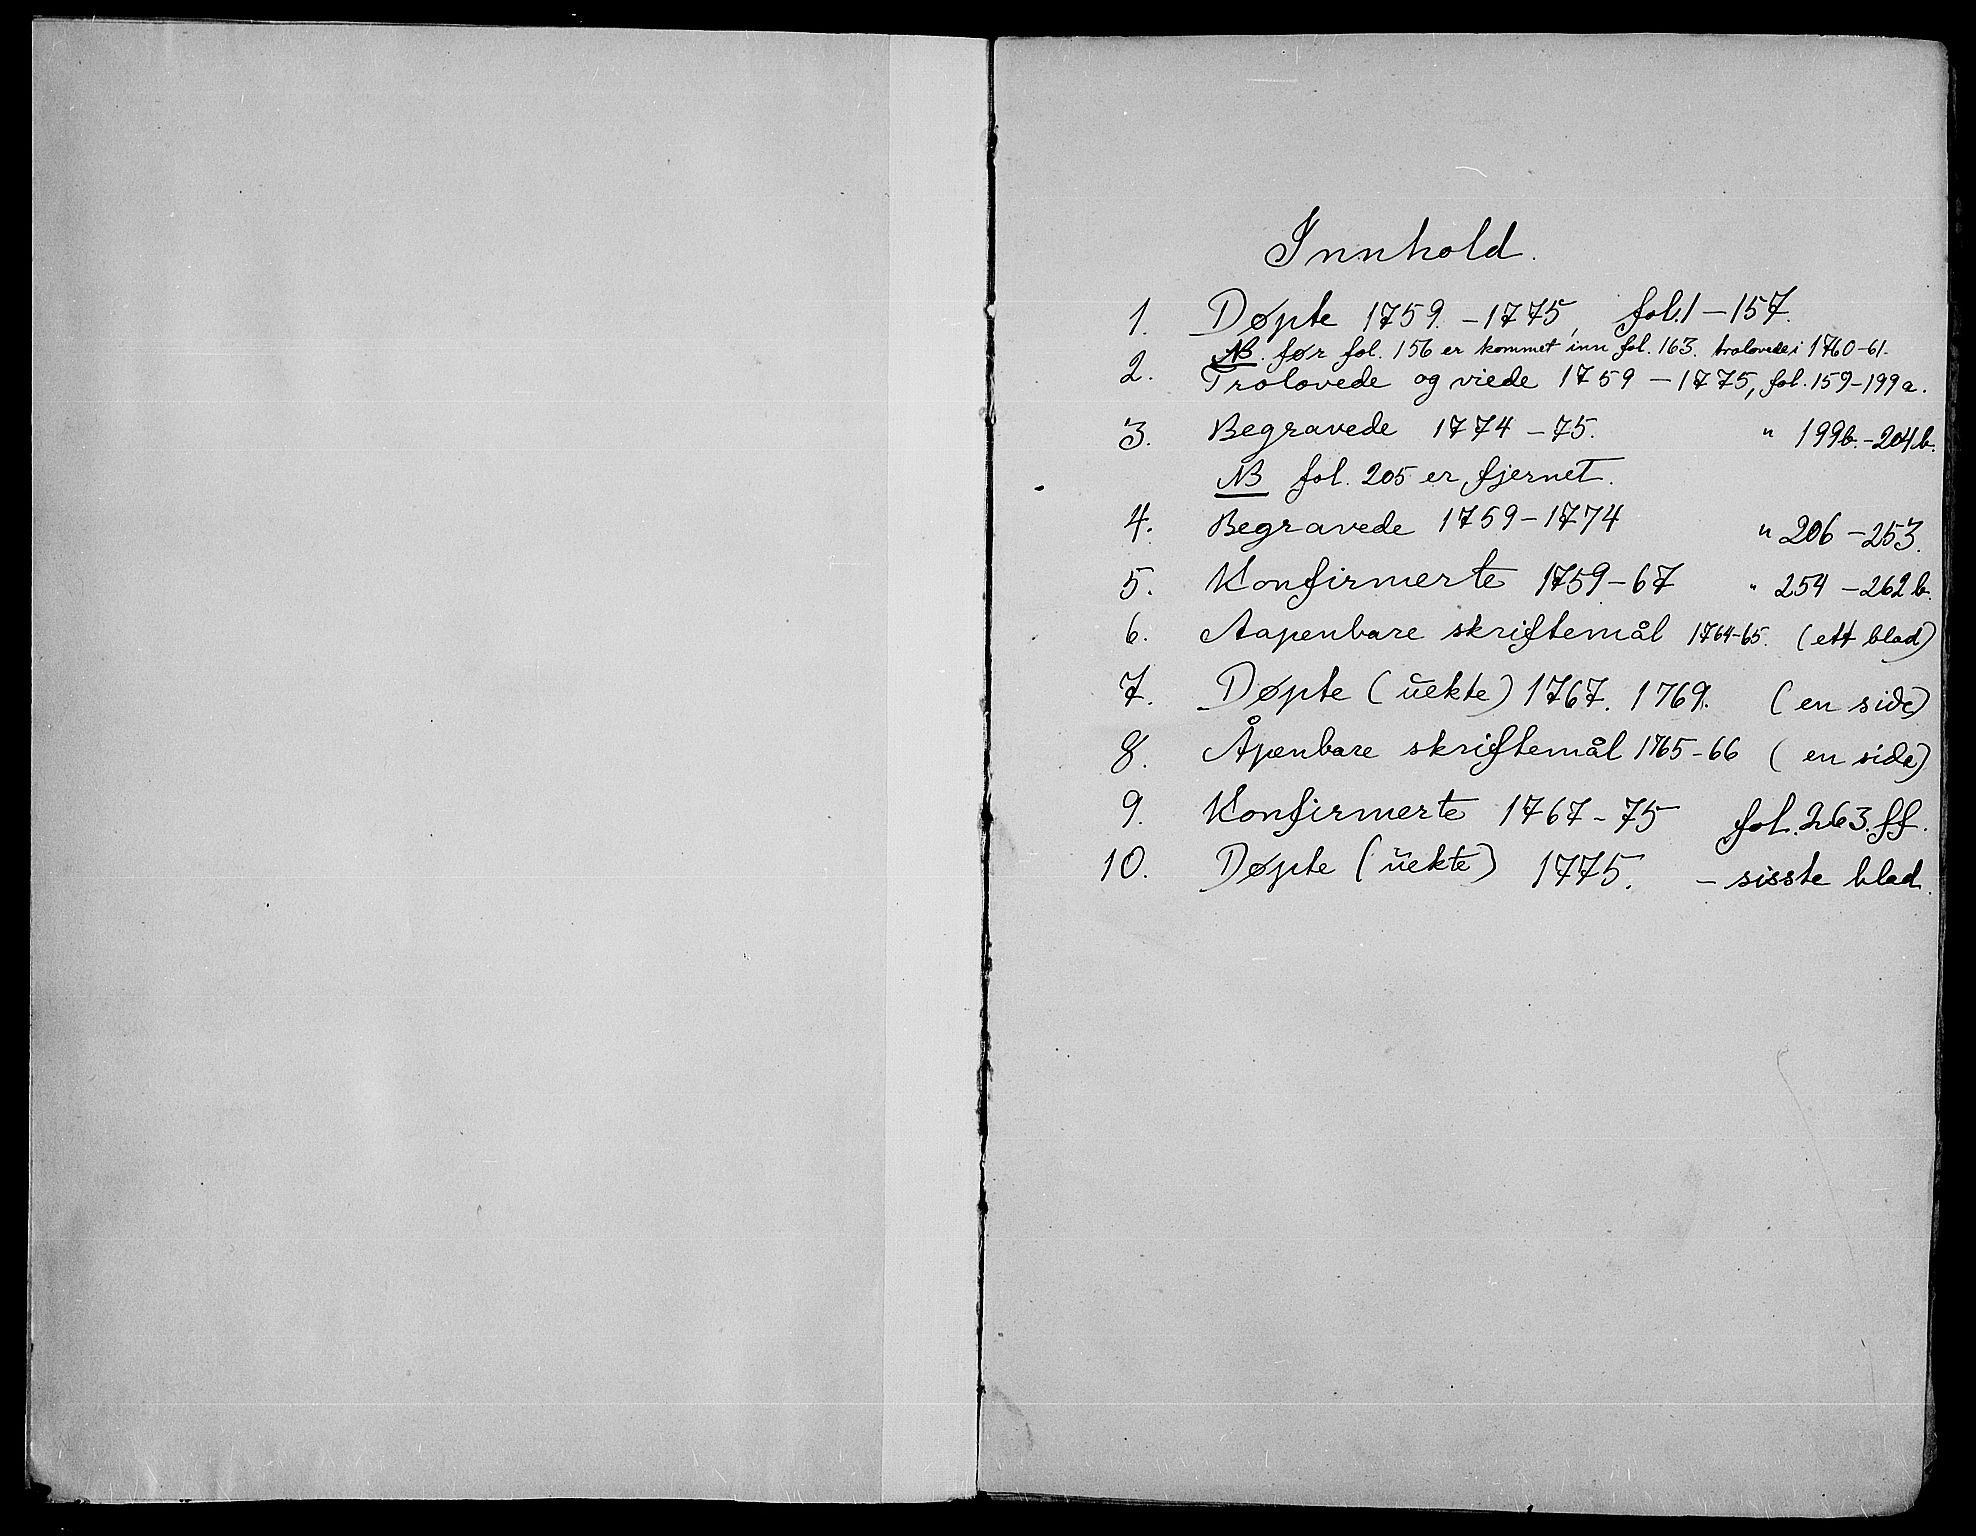 Innhold.
1. Døpte 1759. - 1775, fol. 1 - 157.
NB. før fol. 156 er kommet inn fol. 163. trolovede i 1760-61.
2. Trolovede og viede 1759 - 1775, fol. 159-199a.
3. Begravede 1774 - 75. " 199b. - 204b.
NB fol. 205 er fjernet.
4. Begravede 1759 - 1774 " 206 - 253.
5. Konfirmerte 1759 - 67 " 254 - 262b.
6. Aapenbare skriftemål 1764-65. (ett blad)
7. Døpte (uekte) 1767. 1769. (en side)
8. Åpenbare skriftemål 1765 - 66 (en side)
9. Konfirmerte 1767 - 75 fol. 263. ff.
10. Døpte (uekte) 1775. - sisste blad.